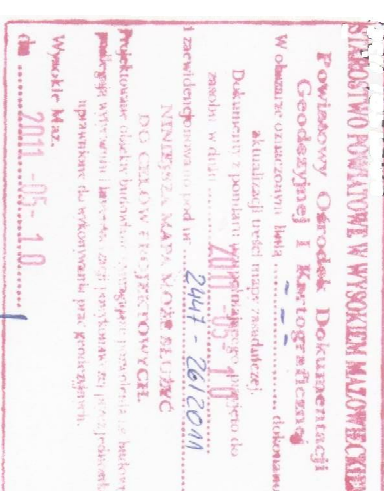 STAROSTWO POWIATOWE W WYSOKIEM MAZOWIECKIEM
Powiatowy Ośrodek Dokumentacji
Geodezyjnej i Kartograficznej
W obszarze oznaczonym linią ........ dokonano
aktualizacji treści mapy zasadniczej.
Dokumenty z pomiaru przyjęto do
zasobu w dniu 2011 -05- 10
i zaewidencjonowano pod nr 2447 - 26/2011
NINIEJSZA MAPA MOŻE SŁUŻYĆ
DO CELÓW PROJEKTOWYCH
Projektowane obiekty budowlane
uprawnione do wykonywania prac geodezyjnych.
Wysokie Maz.
dn ........ 2011 -05- 10